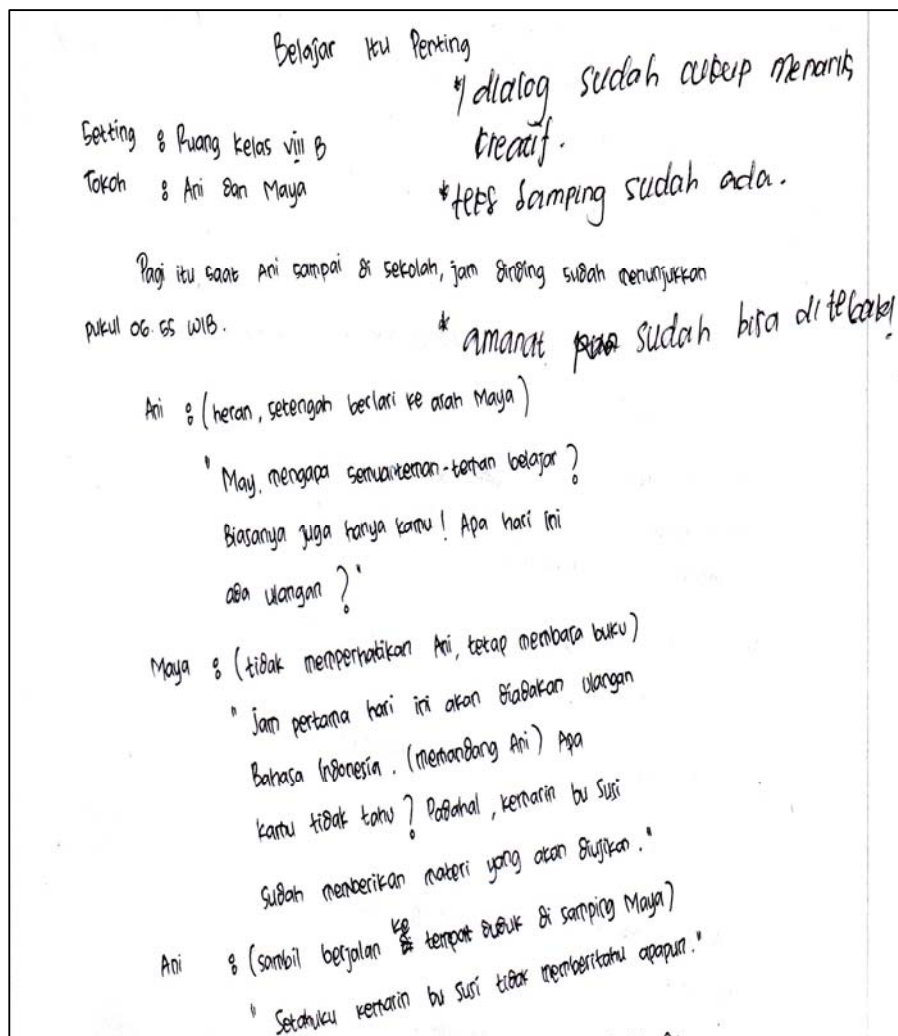 Belajar Itu Penting
*) dialog sudah cukup menarik
kreatif.
Setting : Ruang kelas viii B
Tokoh : Ani dan Maya
* teks samping sudah ada.
Pagi itu saat Ani sampai di sekolah, jam dinding sudah menunjukkan
pukul 06.55 WIB.
* amanat sudah bisa ditebak!
Ani : (heran, setengah berlari ke arah Maya)
" May, mengapa semua teman-teman belajar ?
Biasanya juga hanya kamu ! Apa hari ini
ada ulangan ? "
Maya : (tidak memperhatikan Ani, tetap membaca buku)
" Jam pertama hari ini akan diadakan ulangan
Bahasa Indonesia. (memandang Ani) Apa
kamu tidak tahu ? Padahal, kemarin bu Susi
sudah memberikan materi yang akan diujikan. "
Ani : (sambil berjalan ke tempat duduk di samping Maya)
" Setahuku kemarin bu Susi tidak memberitahu apapun. "